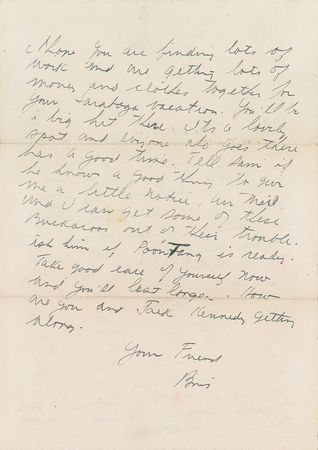 I hope you are finding lots of
work and are getting lots of
money and clothes together for
your Saratoga vacation. You'll be
a big hit there. Its a lovely
spot and everyone who goes there
has a good time. Tell Sam if
he knows a good thing to give
me a little notice, air mail,
and I can get some of these
Buckaroos out of their trouble.
ask him if PoonTang is ready.
Take good care of yourself now
and you'll last longer. How
are you and Jack Kennedy getting
along.
Your Friend